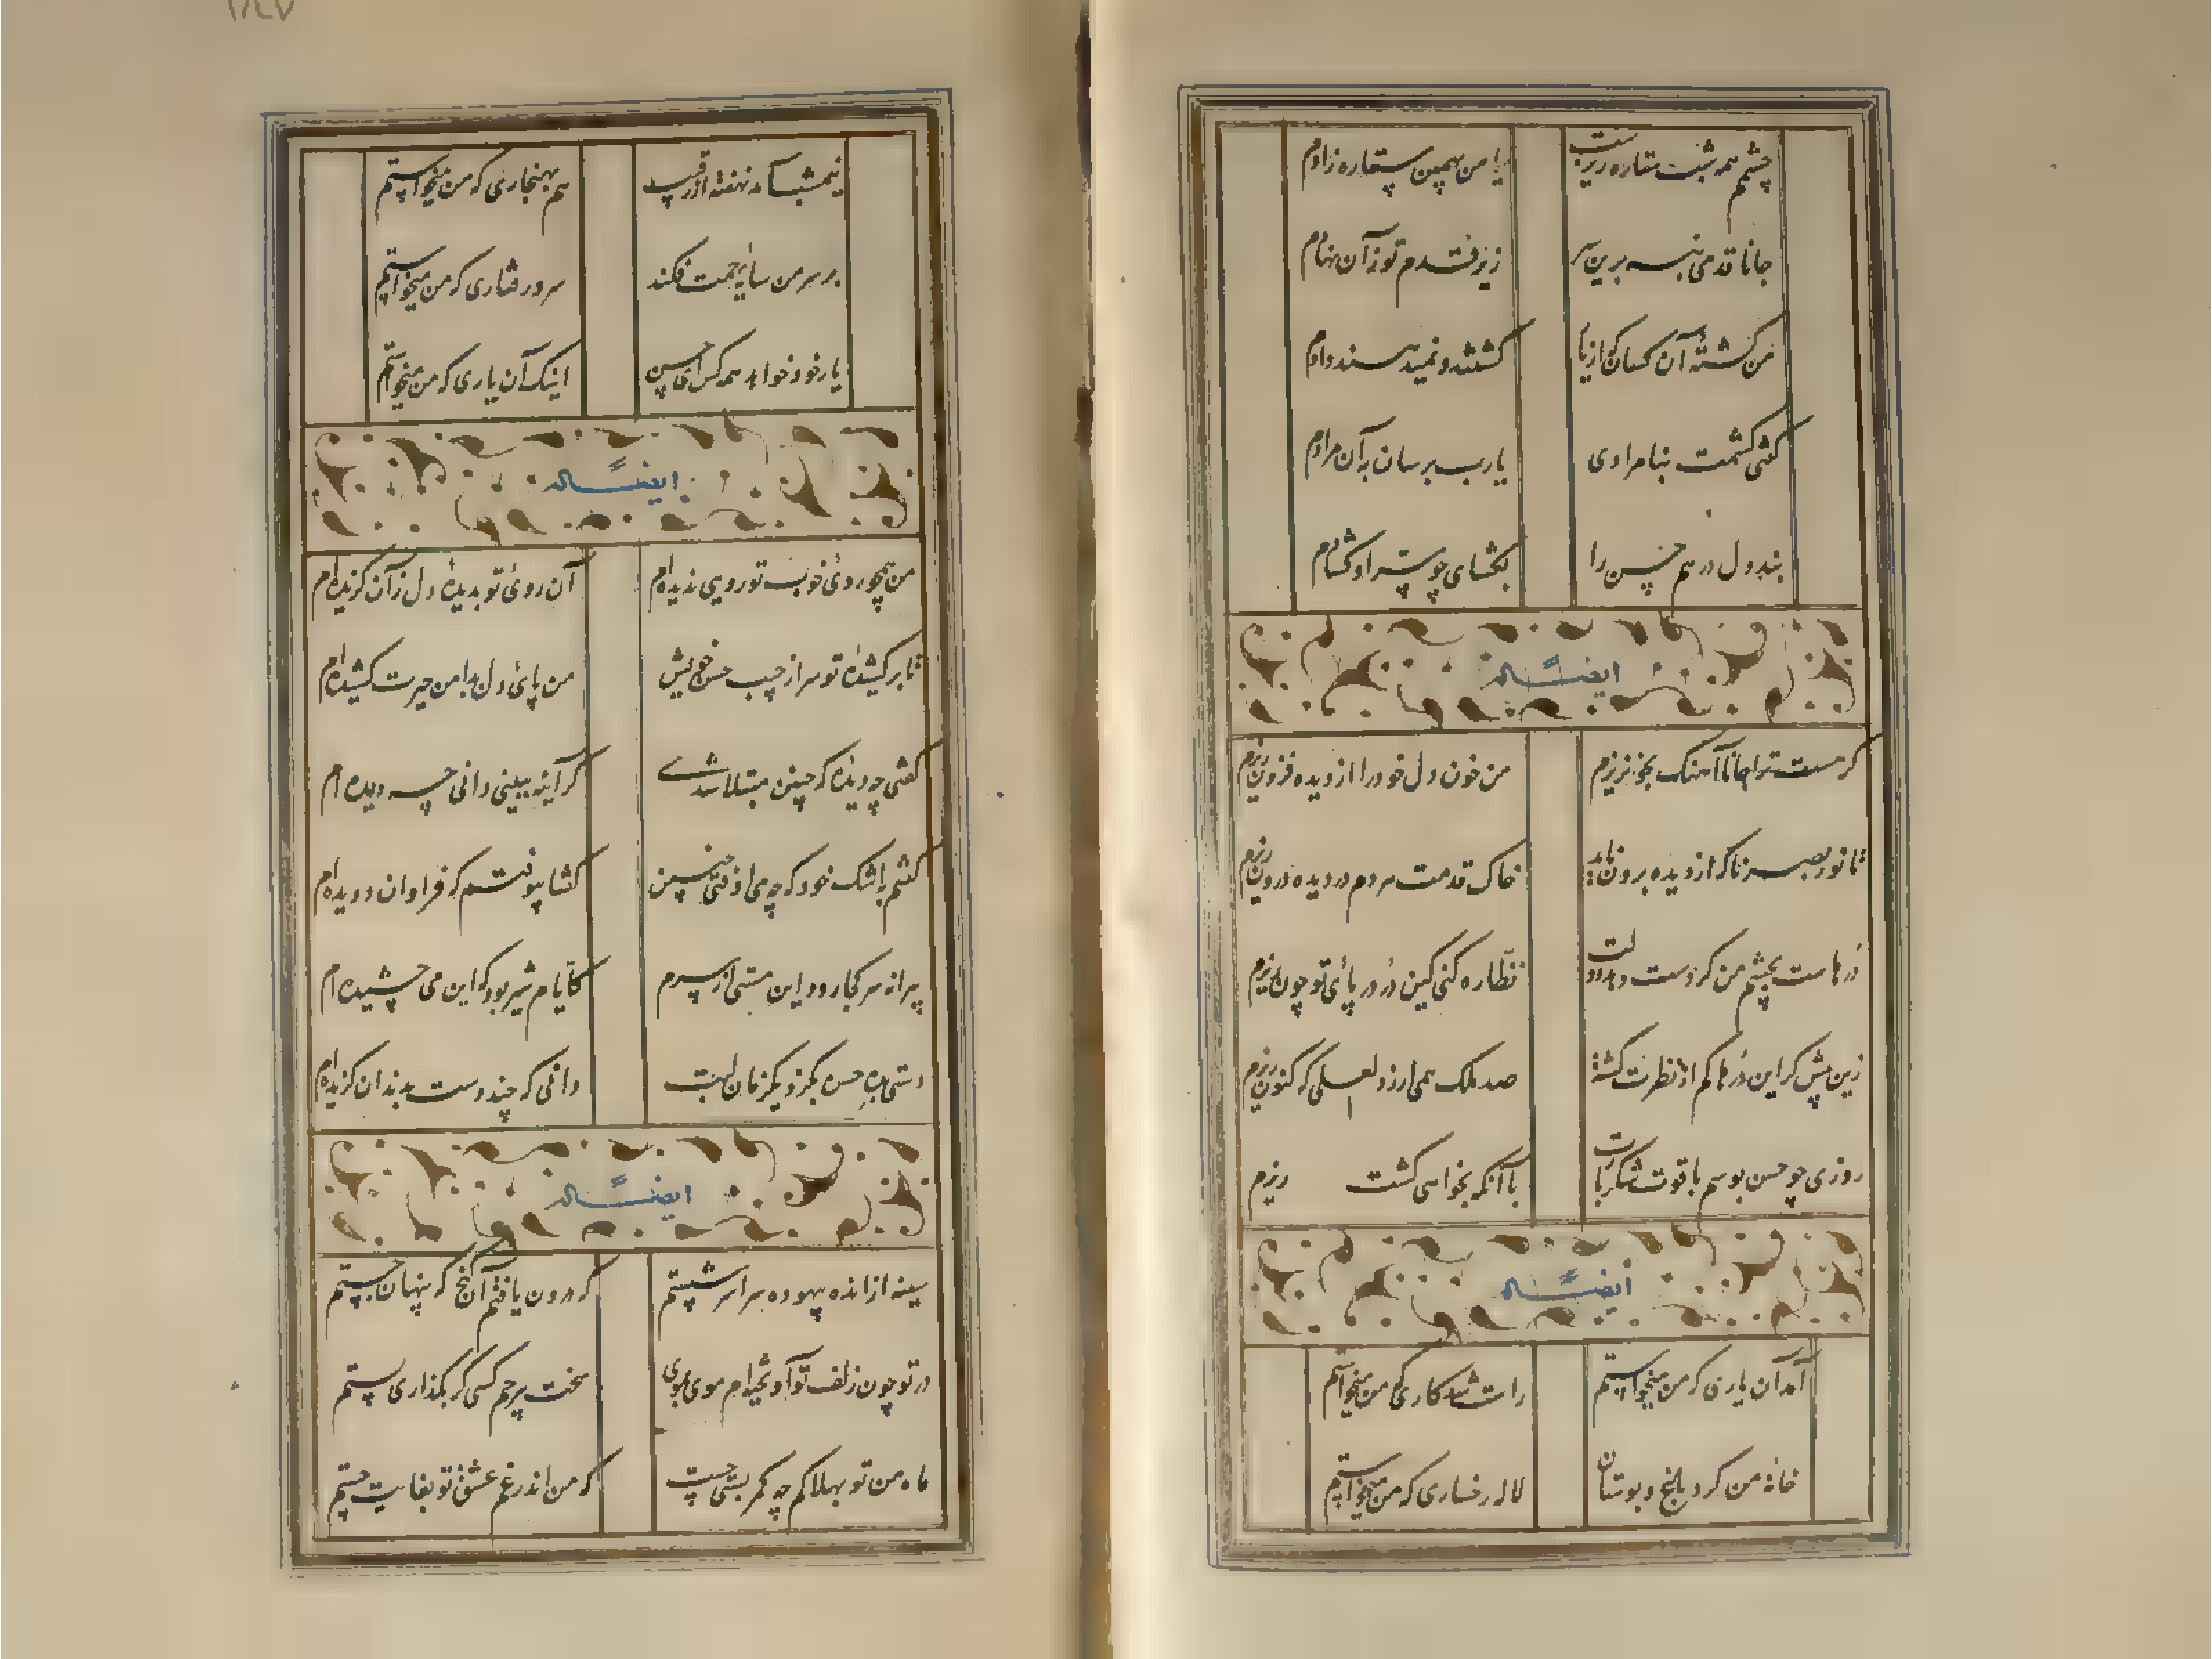 چشمم همه شب ستاره ریزست یا من بهمین ستاره زادم
جانا قدمی بنه برین سر زیر قدم تو زان نهادم
من کشتهٔ آن کسان که از ناز کشتند و نمیدهند دادم
گفتی کشمت بنامرادی یارب برسان بآن مرادم
بند دل درهم حسن را بگشای چو بسترا و گشادم
ایضاً له
گر هست ترا جانا آهنگ بخونریزم من خون دل خود را از دیده فزون ریزم
تا نور بصر ناگه از دیده برون ناید خاک قدمت مردم در دیده درون ریزم
درهاست بچشم من گر دست دهد دولت نظاره کنی کین در در پای تو چون ریزم
زین پیش گر این درها کم از نظرت گشته صد ملک همی ارزد لعلی که کنون ریزم
روزی چو حسن بوسم یاقوت شکربارت با آنکه بخواهی کشت ریزم
ایضاً له
آمد آن یاری که من میخواستم راست شد کاری که من میخواستم
خانهٔ من کرد باغ و بوستان لاله رخساری که من میخواستم
نیمشب آمد نهفته از رقیب هم بهنجاری که من میخواستم
بر سر من سایهٔ رحمت فکند سرو رفتاری که من میخواستم
یار خود خواهد همه کس ای حسن اینک آن یاری که من میخواستم
ایضاً له
من همچو روی خوب تو رویی ندیده‌ام آن روی تو بدیدهٔ دل زان گزیده‌ام
تا برکشیدهٔ تو سر از جیب حسن خویش من پای دل بدامن حیرت کشیده‌ام
گفتی چه دیدهٔ که چنین مبتلا شدی گر آینه ببینی دانی چه دیده ام
گفتم باشک خود که چه می‌افتی چنین گفتا بیوفتم که فراوان دویده‌ام
پیرانه سر کجا رود این مستی از سرم کایام شیر بود که این می چشیده ام
دستی بده حسن بگزد یکزمان لبت دانی که چند دست بدندان گزیده‌ام
ایضاً له
سینه از انده بیهوده سراسر شستم که درون یافتم آن گنج که پنهان جستم
در تو چون زلف تو آویخته‌ام موی بموی سخت بیرحم کسی گر بگذاری سستم
ماه من تو بهلاکم چه کمر بستی چست که من اندر غم عشق تو بغایت چستم